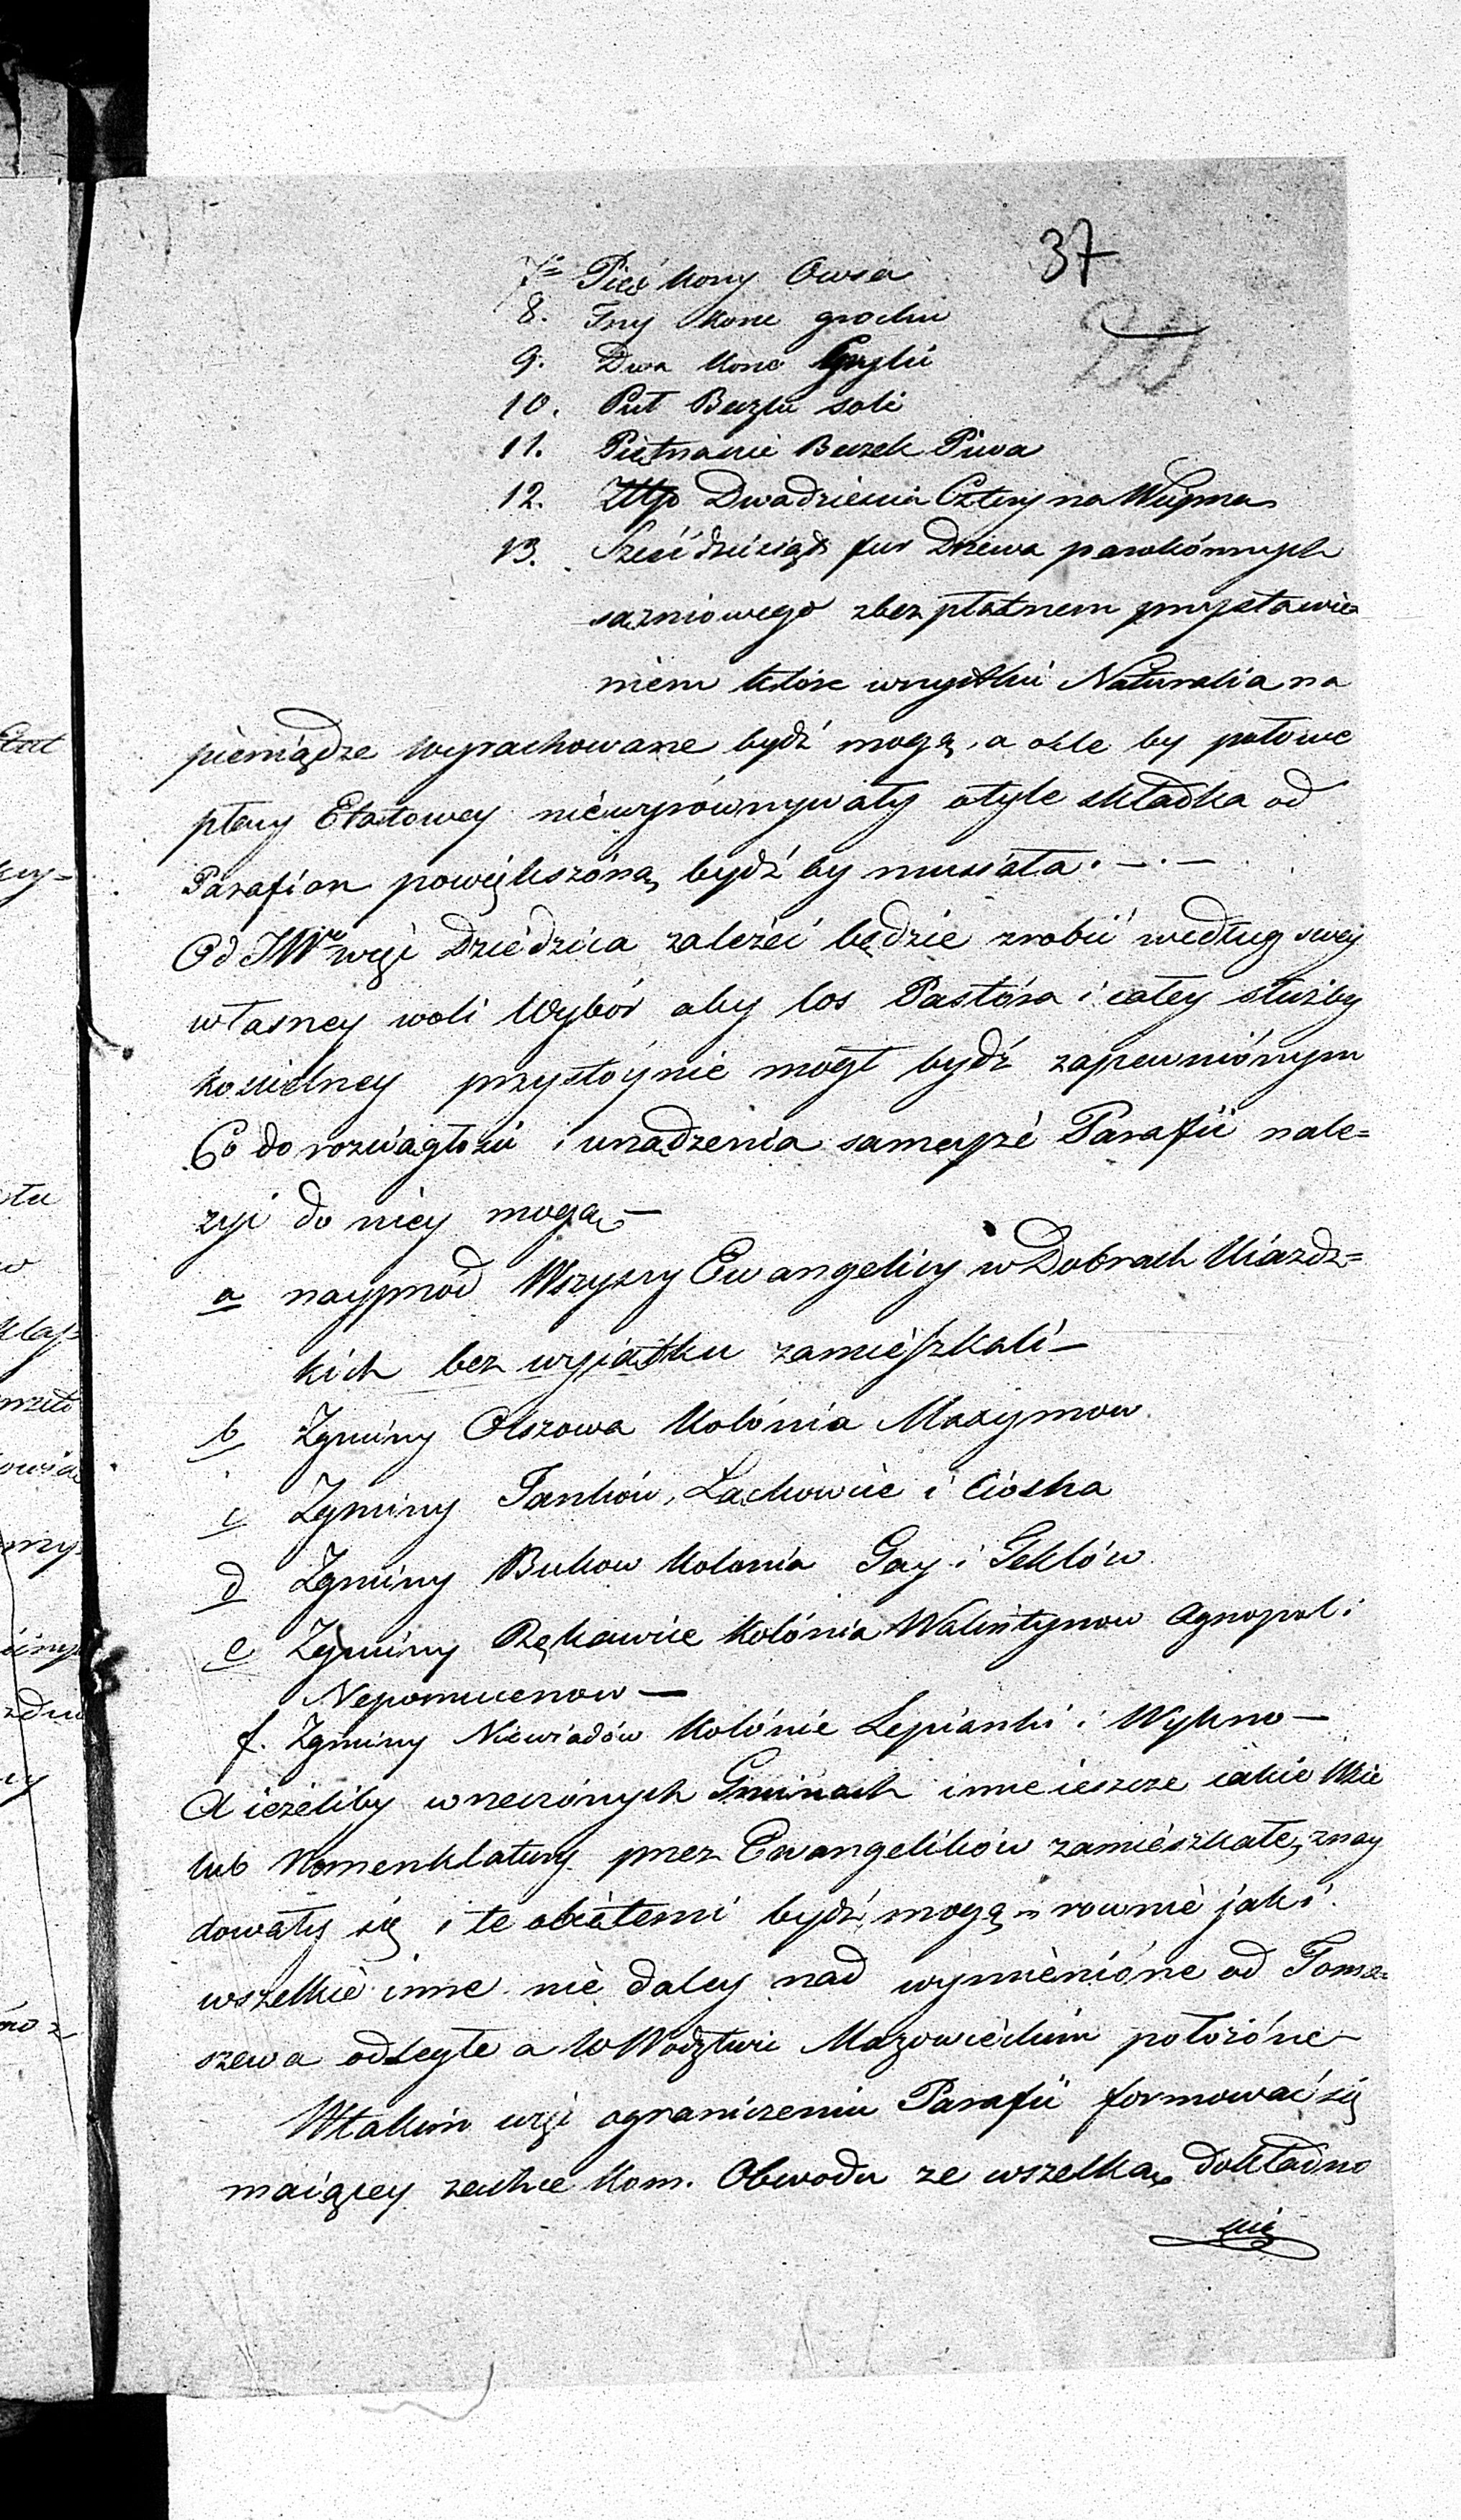 37
7º Pięć Kory Owsa
8. Trzy Korce grochu
9. Dwa Korce
10. Puł Beczki soli
11. Piętnaście Beczek Piwa
12. Złtp Dwadzieścia Cztery na
13. Sześćdziesiąt fur Drzewa parokonnych
sązniowego z bezpłatnem przystawie=
niem które wszystkie Naturalia na
pieniądze wyrachowane bydź mogą, a oile by połowe
płacy Etatowey niewyrównywały otyle składka od
Parafian powiększóną bydź by musiała. —.—
Od JW więc Dziedzica zależeć będzie zrobić według swej
własney woli Wybór aby los Pastóra i całey służby
kościelney przystóynie mógł bydź zapewniónym
Co do rozciągłości i urządzenia sameyże Parafii nale=
żyć do niey mogą —
a nayprzod Wszyscy Ewangelicy w Dobrach Uiazdz=
kich bez wyiątku zamieszkali —
b Zgminy Olszowa Kolónia Maxymow
c Zgminy Tanków, Łackowice i Ciosna
d Zgminy Bukow Kolonia Gay i Teklów
e Zgminy Rękawice Kolónia Walentynow Agnopol i
Nepomucenow —
f. Zgminy Niewiadów Kolónie Lepianki i Wykno —
A ieżeliby w rzeczónych Gminach inne ieszcze iakie Wsie
lub Nomenklatury przez Ewangelików zamieszkałe, znay
dowały się i te obiętemi bydź mogą — rownie jak i
wszelkie inne nie daley nad wymienióne od Toma=
szewa odległe a w Wodztwie Mazowieckim położóne —
Wtakim więc ograniczeniu Parafii formować się
maiącey zechce Kom. Obwodu ze wszelką dokładno
ścią